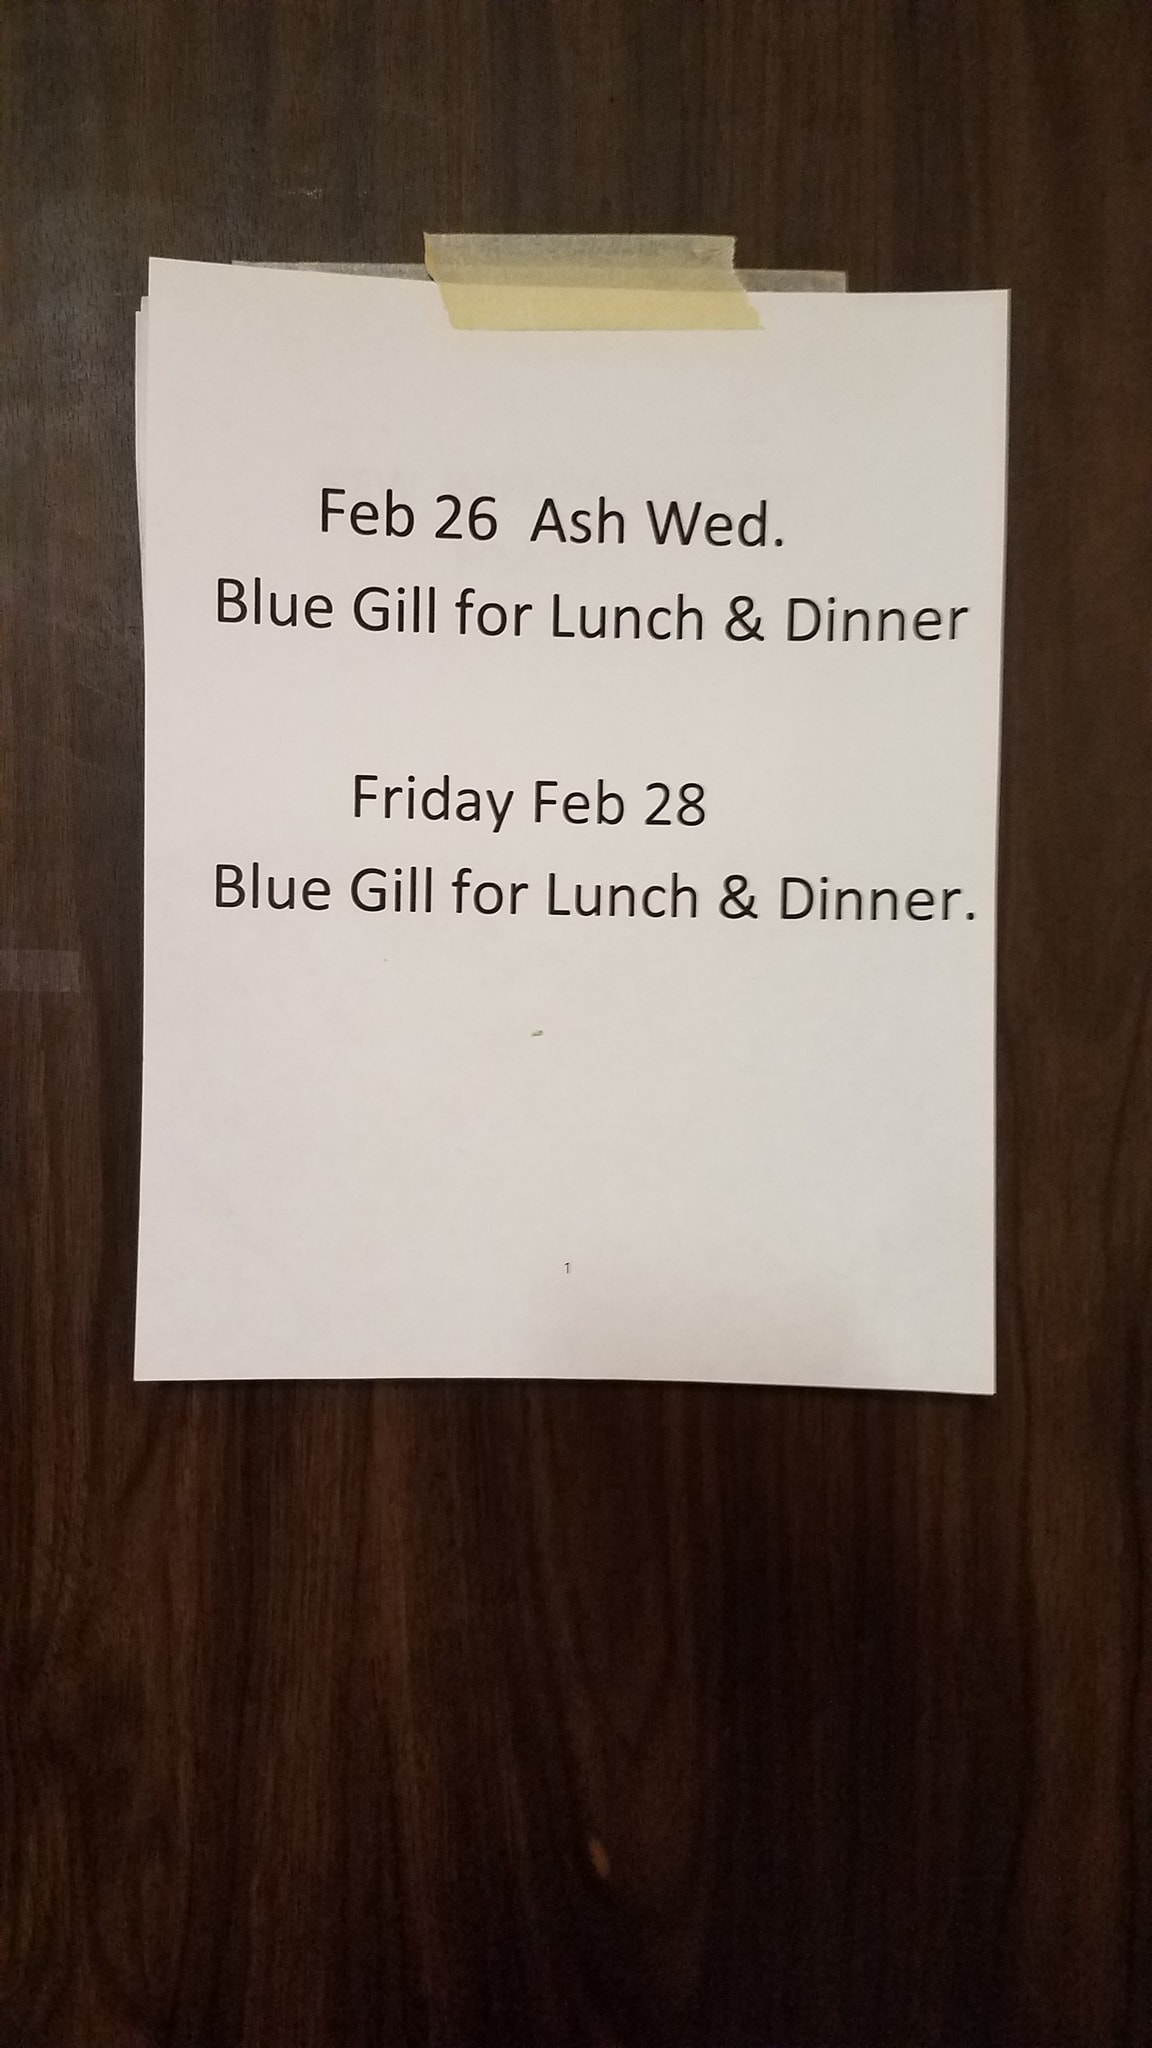 Feb 26  Ash Wed.
Blue Gill for Lunch & Dinner
Friday Feb 28
Blue Gill for Lunch & Dinner.
1